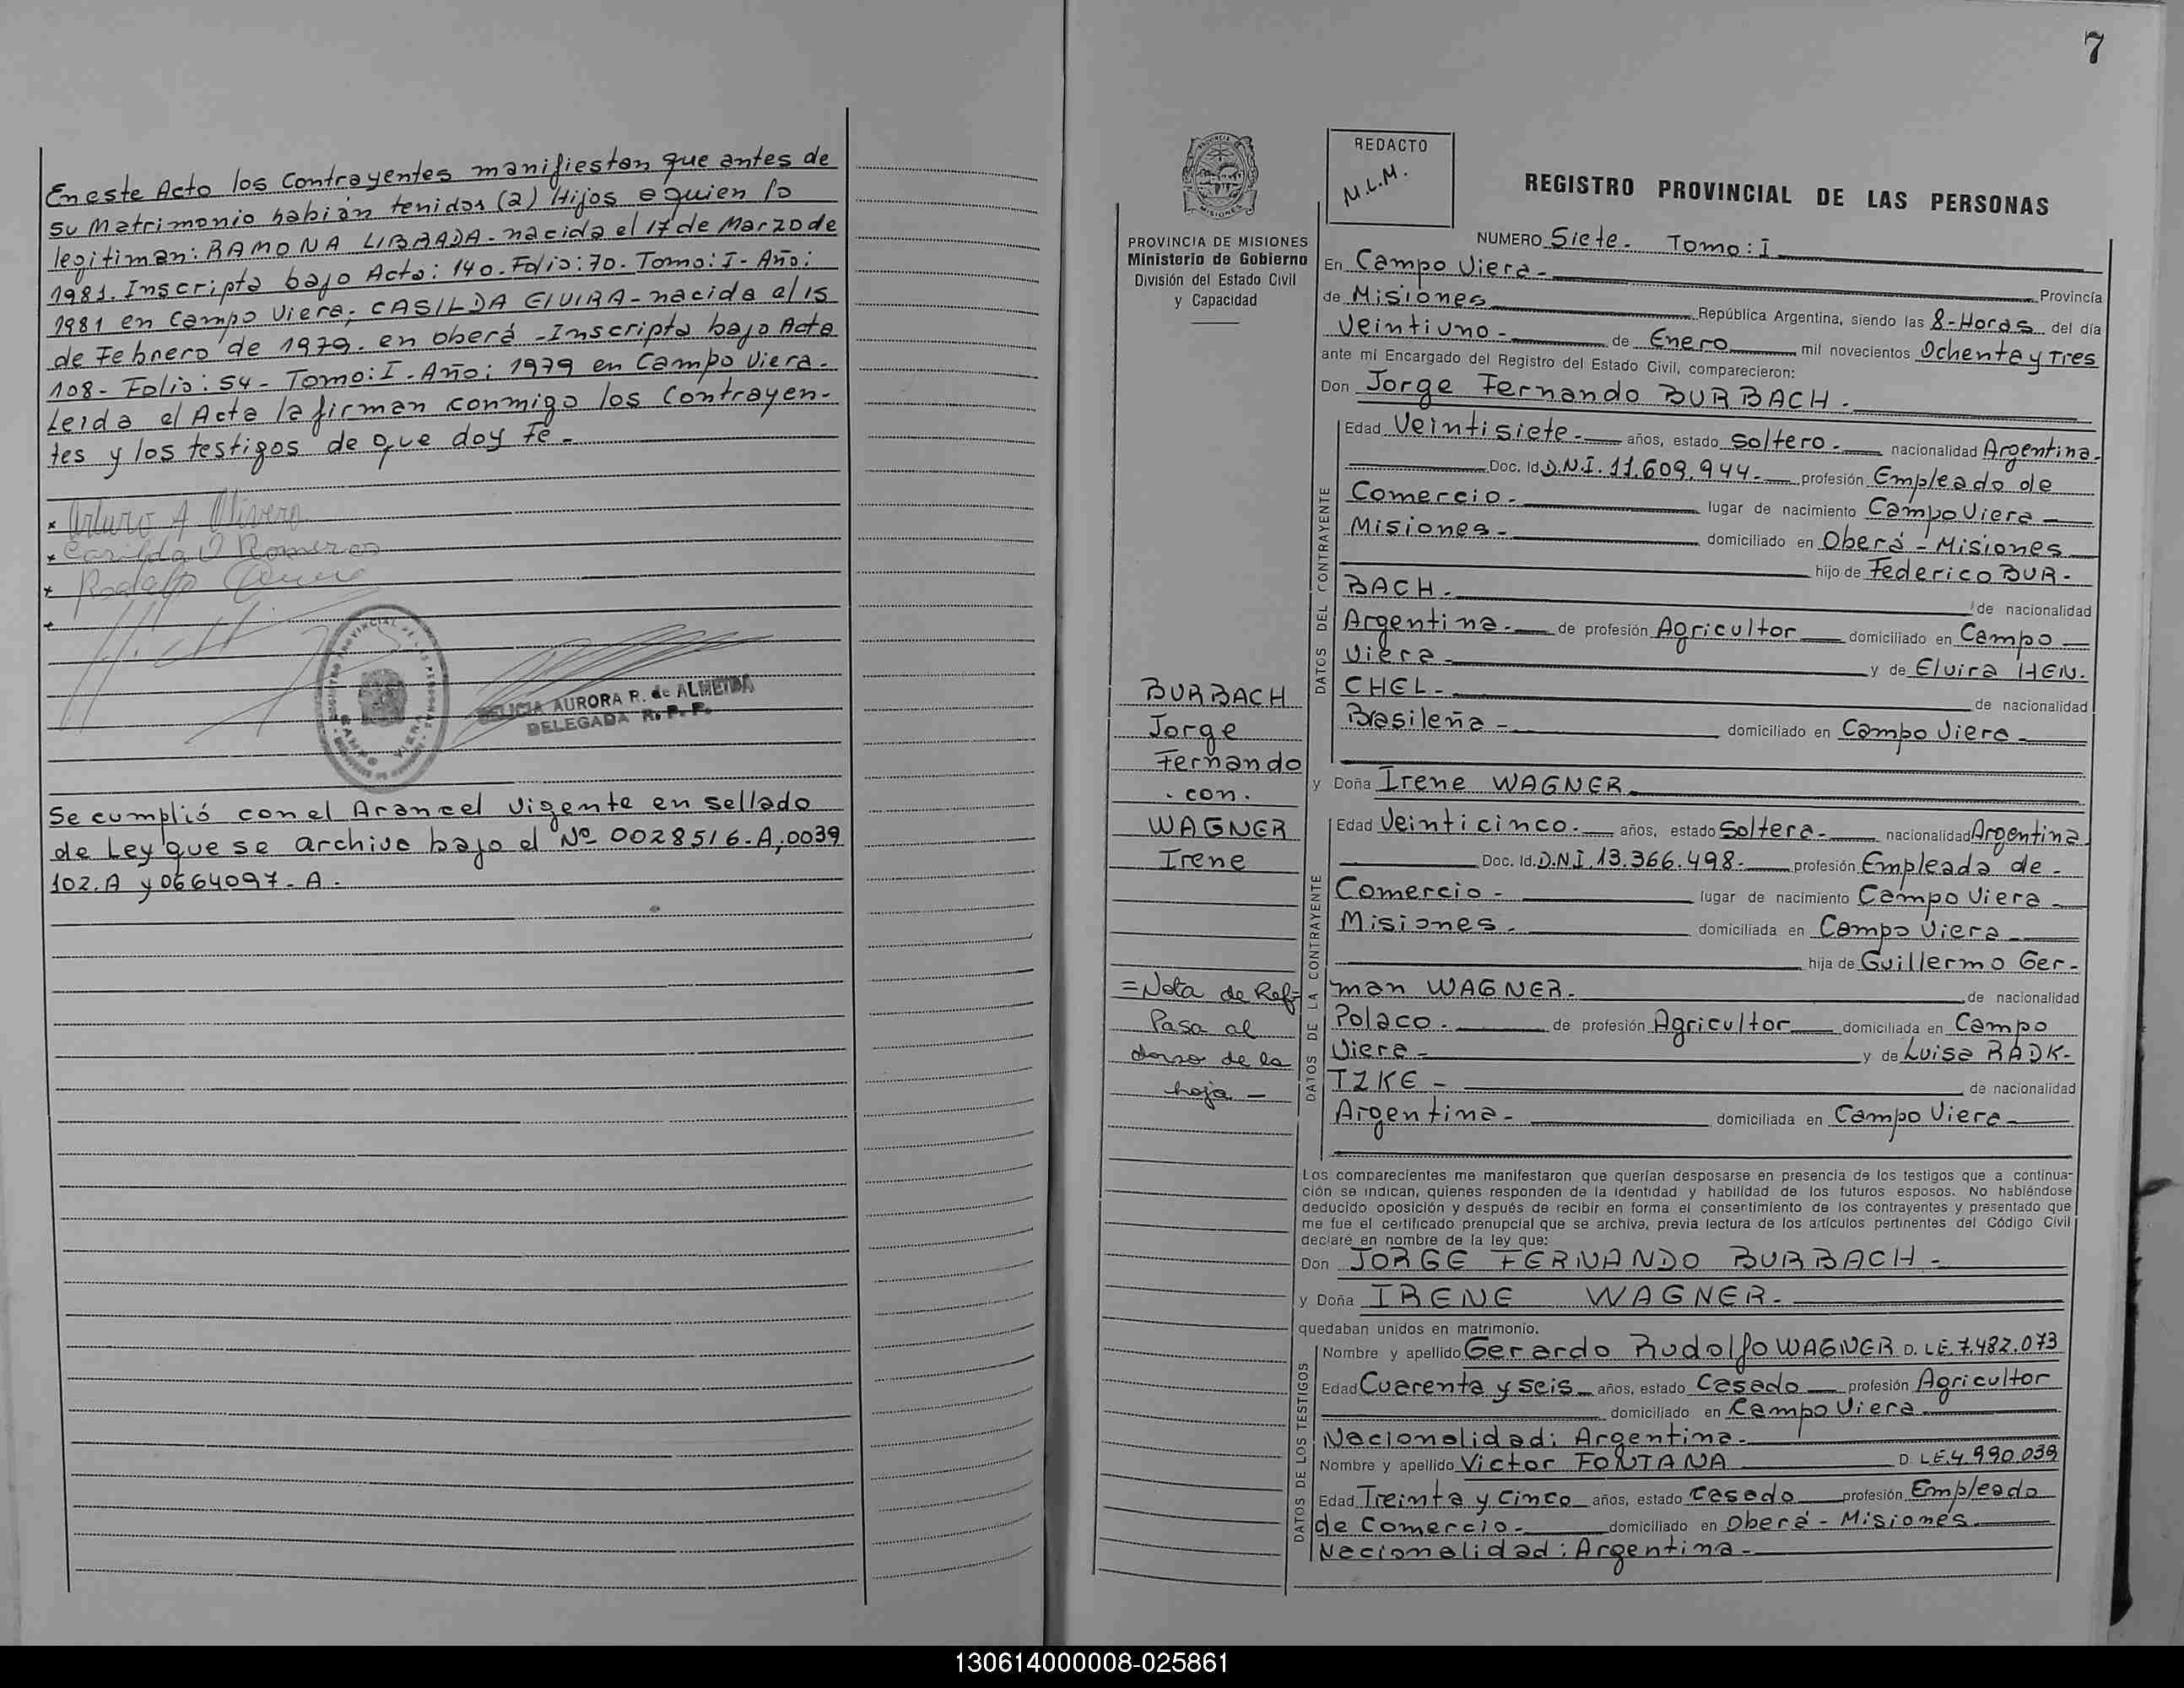 En este Acto los Contrayentes manifiestan que antes de
su Matrimonio habián tenidos (2) Hijos a quien lo
legitiman: RAMONA LIBRADA - nacida el 17 de Marzo de
1981. Inscripta bajo Acta: 140. Folio: 70. Tomo: I - Año:
1981 en Campo Viera; CASILDA ELVIRA - nacida el 15
de Febrero de 1979. en oberá - Inscripta bajo Acta
108 - Folio: 54 - Tomo: I - Año: 1979 en Campo Viera.
Leida el Acta la firman conmigo los Contrayen-
tes y los testigos de que doy Fe -
x Arturo A Olivera
x Casilda O Romero
x Rodolfo
x
DELICIA AURORA R. de ALMEIDA
DELEGADA R. P. P.
Se cumplió con el Arancel Vigente en sellado
de Ley que se archivo bajo el Nº 0028516-A, 0039
102. A y 0664097. A.
7
PROVINCIA DE MISIONES
Ministerio de Gobierno
División del Estado Civil
y Capacidad
REDACTO
M.L.M.
REGISTRO PROVINCIAL DE LAS PERSONAS
NUMERO Siete - Tomo: I
En Campo Viera - Provincia
de Misiones República Argentina, siendo las 8-Horas del día
Veintiuno - de Enero mil novecientos Ochenta y Tres
ante mi Encargado del Registro del Estado Civil, comparecieron:
Don Jorge Fernando BURBACH -
DATOS DEL CONTRAYENTE
Edad Veintisiete - años, estado soltero - nacionalidad Argentina -
Doc. Id D.N.I. 11.609.944 - profesión Empleado de
Comercio - lugar de nacimiento Campo Viera -
Misiones - domiciliado en Oberá - Misiones
hijo de Federico BUR-
BACH - de nacionalidad
Argentina - de profesión Agricultor domiciliado en Campo
Viera - y de Elvira HEN-
CHEL - de nacionalidad
Brasileña - domiciliado en Campo Viera -
BURBACH
Jorge
Fernando
- con -
WAGNER
Irene
y Doña Irene WAGNER
DATOS DE LA CONTRAYENTE
Edad Veinticinco - años, estado Soltera - nacionalidad Argentina
Doc. Id. D.N.I. 13.366.498 - profesión Empleada de -
Comercio - lugar de nacimiento Campo Viera -
Misiones - domiciliada en Campo Viera
hija de Guillermo Ger-
man WAGNER - de nacionalidad
Polaco - de profesión Agricultor domiciliada en Campo
Viera - y de Luisa RADK-
TZKE - de nacionalidad
Argentina - domiciliada en Campo Viera -
= Nota de Ref=
Pasa al
dorso de la
hoja -
Los comparecientes me manifestaron que querían desposarse en presencia de los testigos que a continua-
ción se indican, quienes responden de la identidad y habilidad de los futuros esposos. No habiéndose
deducido oposición y después de recibir en forma el consentimiento de los contrayentes y presentado que
me fue el certificado prenupcial que se archiva, previa lectura de los artículos pertinentes del Código Civil
declaré en nombre de la ley que:
Don JORGE FERNANDO BURBACH -
y Doña IRENE WAGNER -
quedaban unidos en matrimonio.
DATOS DE LOS TESTIGOS
Nombre y apellido Gerardo Rudolfo WAGNER D. LE. 7.482.073
Edad Cuarenta y seis - años, estado Casado profesión Agricultor
domiciliado en Campo Viera
Nacionalidad: Argentina -
Nombre y apellido Victor FONTANA D. LE. 4.990.039
Edad Treinta y Cinco años, estado Casado profesión Empleado
de Comercio - domiciliado en Oberá - Misiones
Nacionalidad: Argentina -
130614000008-025861